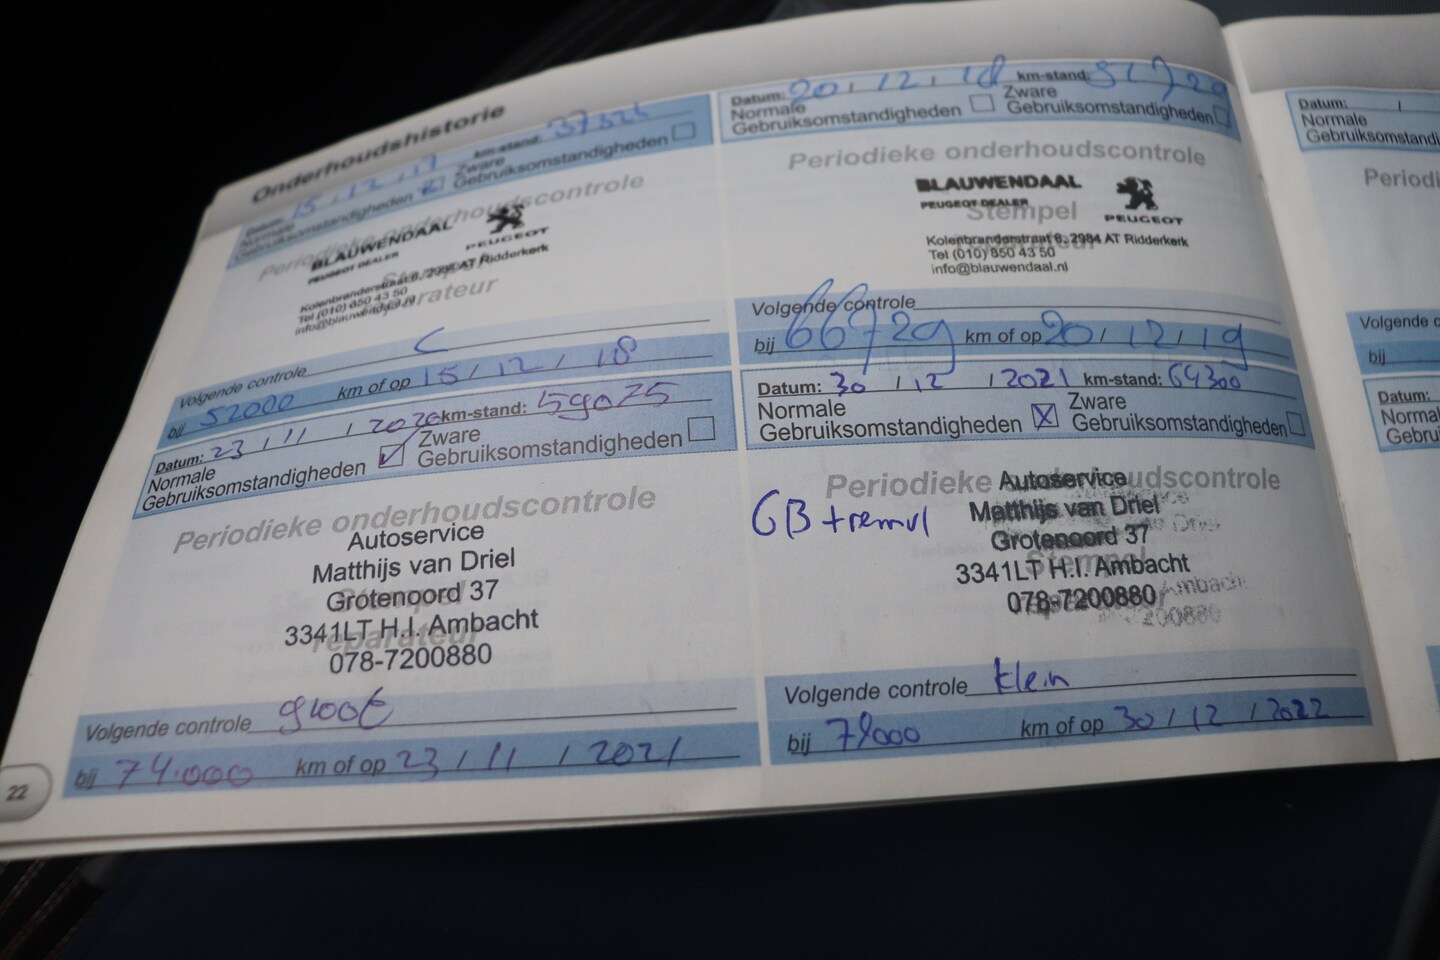 Onderhoudshistorie
Datum: 15 / 12 / 17 km-stand:
Normale Gebruiksomstandigheden Zware Gebruiksomstandigheden
Periodieke onderhoudscontrole
BLAUWENDAAL
PEUGEOT DEALER
PEUGEOT
Kolenbranderstraat 6, 2984 AT Ridderkerk
Tel (010) 850 43 50
info@blauwendaal.nl
Stempel
reparateur
Volgende controle C
bij 52000 km of op 15 / 12 / 18
Datum: 20 / 12 / 18 km-stand: 51729
Normale Gebruiksomstandigheden Zware Gebruiksomstandigheden
Periodieke onderhoudscontrole
BLAUWENDAAL
PEUGEOT DEALER
Stempel
PEUGEOT
Kolenbranderstraat 6, 2984 AT Ridderkerk
Tel (010) 850 43 50
info@blauwendaal.nl
Volgende controle
bij 66729 km of op 20 / 12 / 19
Datum: 23 / 11 / 2020 km-stand: 59025
Normale Gebruiksomstandigheden Zware Gebruiksomstandigheden
Periodieke onderhoudscontrole
Autoservice
Matthijs van Driel
Grotenoord 37
Stempel
3341LT H.I. Ambacht
reparateur
078-7200880
Volgende controle
bij 74.000 km of op 23 / 11 / 2021
Datum: 30 / 12 / 2021 km-stand: 64300
Normale Gebruiksomstandigheden Zware Gebruiksomstandigheden
Periodieke onderhoudscontrole
GB + remvl
Autoservice
Matthijs van Driel
Grotenoord 37
Stempel
3341LT H.I. Ambacht
078-7200880
Volgende controle klein
bij 79000 km of op 30 / 12 / 2022
22
Datum: /
Normale
Volgende
bij
Datum: